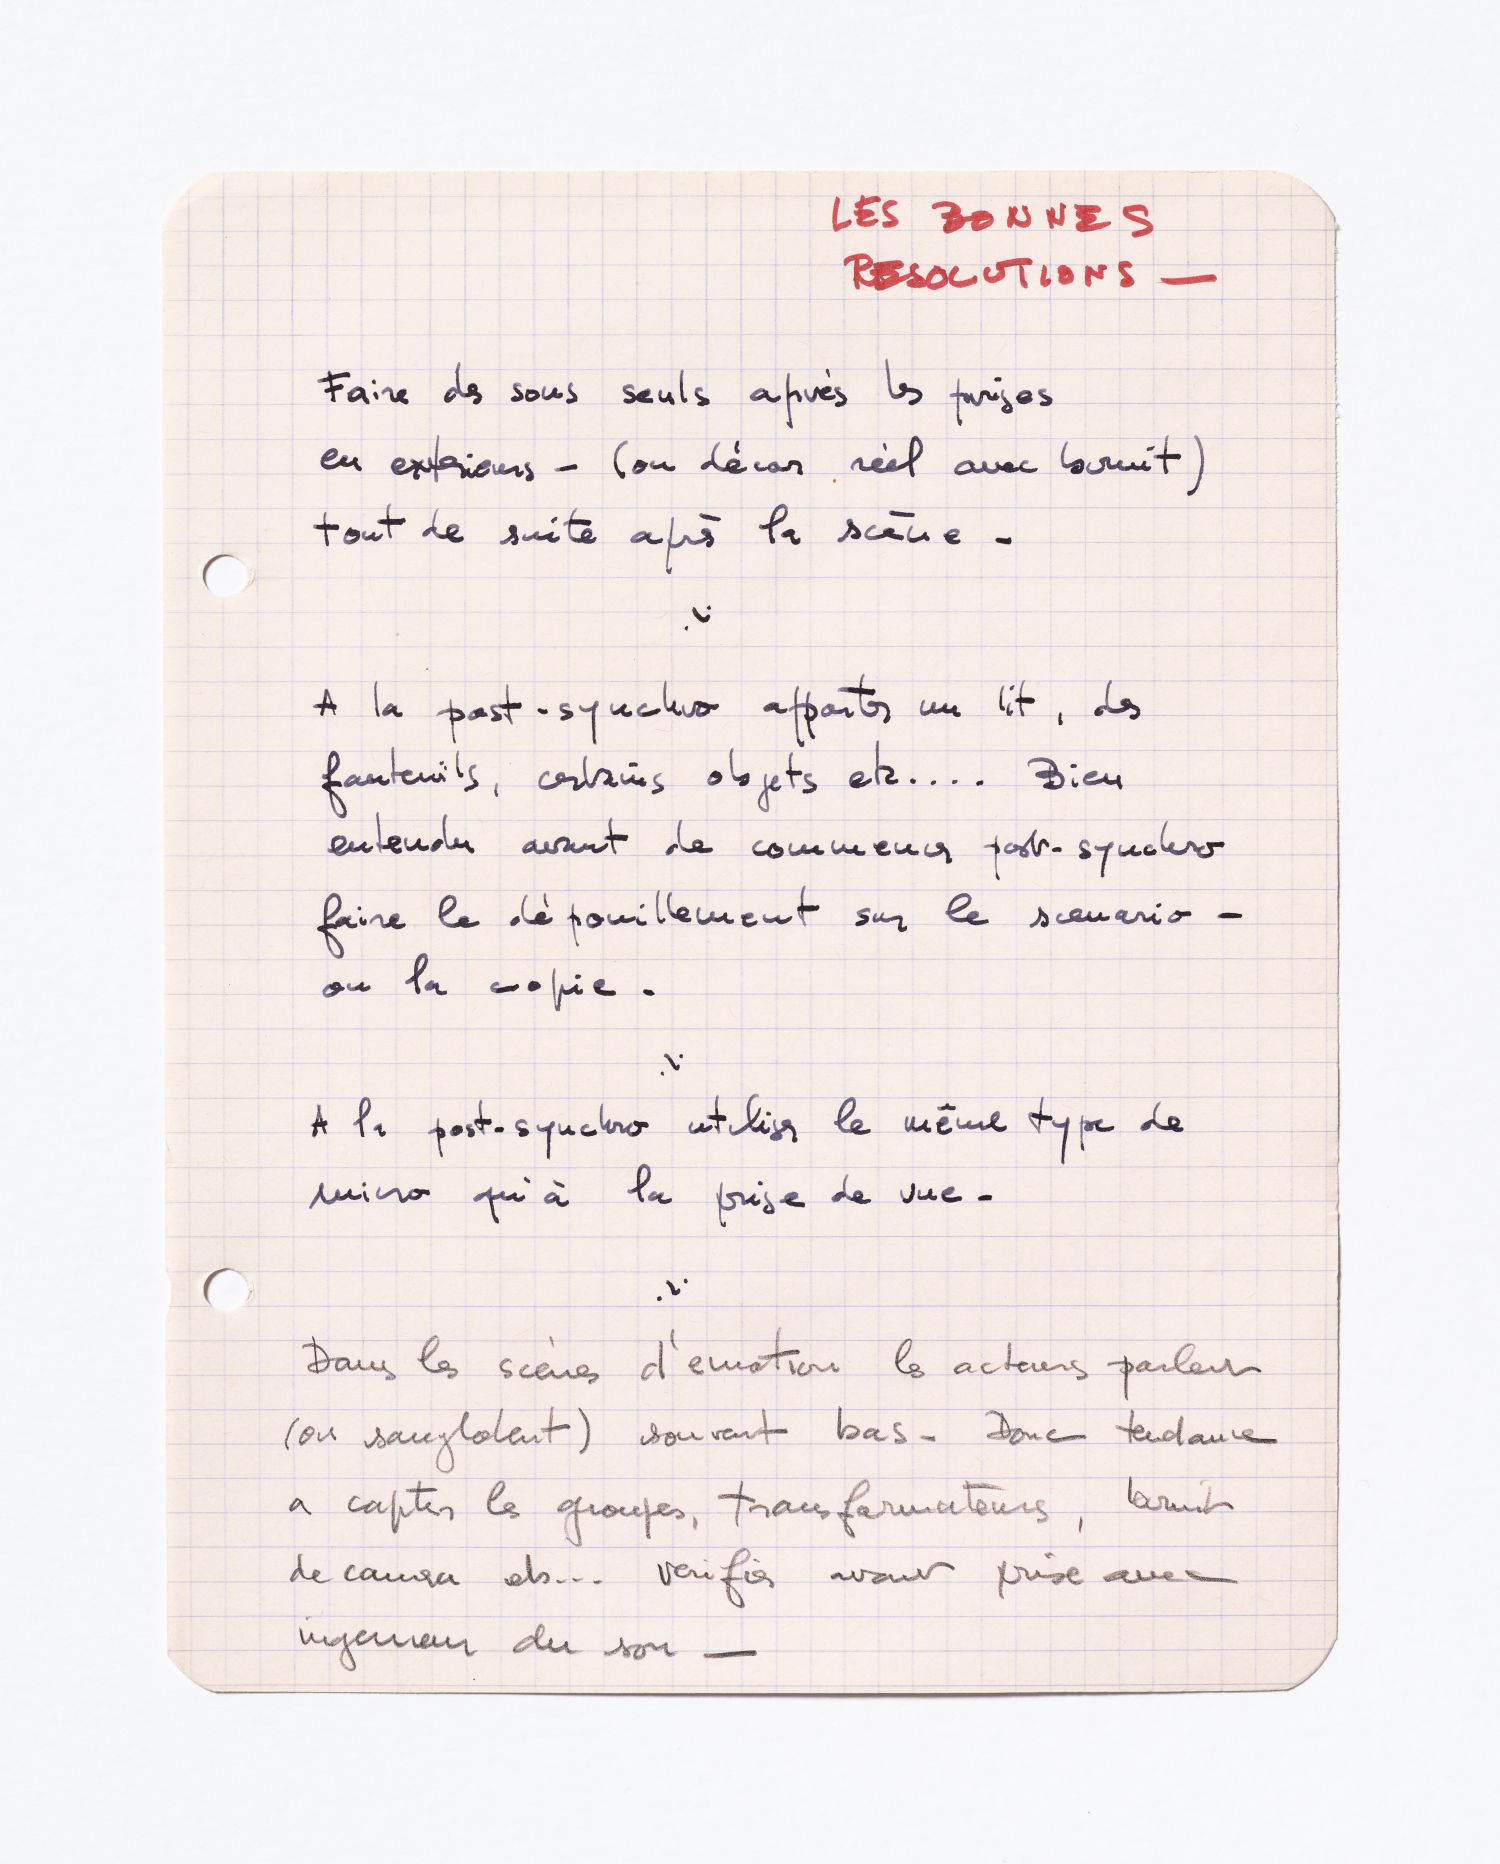 LES BONNES
RESOLUTIONS —
Faire des sons seuls après les prises
en exterieurs - (ou décor réel avec bruit)
tout de suite après la scène -
A la post-synchro apporter un lit, des
fauteuils, certains objets etc.... Bien
entendu avant de commencer post-synchro
faire le dépouillement sur le scenario -
ou la copie -
A la post-synchro utiliser le même type de
micro qu'à la prise de vue -
Dans les scènes d'emotion les acteurs parlent
(ou sanglotent) souvent bas - Donc tendance
a capter les groupes, transformateurs, bruit
de camera etc... verifier avant prise avec
ingenieur du son —